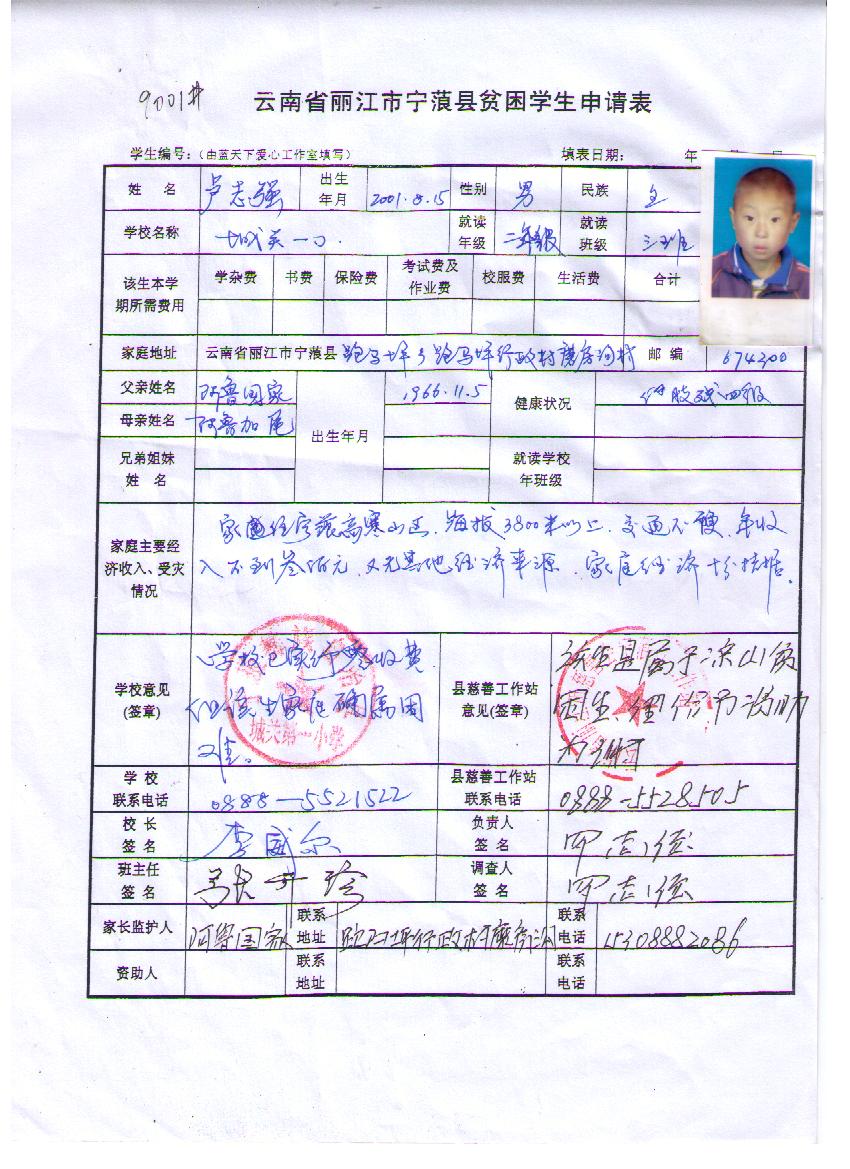 9001#
云南省丽江市宁蒗县贫困学生申请表
学生编号：（由蓝天下爱心工作室填写） 填表日期： 年
姓 名 卢志强 出生年月 2001.8.15 性别 男 民族
学校名称 城关一小. 就读年级 二年级 就读班级 三班
该生本学期所需费用 学杂费 书费 保险费 考试费及作业费 校服费 生活费 合计
家庭地址 云南省丽江市宁蒗县 跑马坪乡跑马坪行政村磨房沟村 邮 编 674300
父亲姓名 阿鲁国家 出生年月 1966.11.5 健康状况 肢残四级
母亲姓名 阿鲁加尾
兄弟姐妹姓 名 就读学校年班级
家庭主要经济收入、受灾情况
家住宁蒗高寒山区，海拔3800米以上，交通不便，年收
入不到叁佰元，又无其他经济来源，家庭经济十分拮据。
学校意见(签章)
学校已实行零收费
但该生家庭确属困
难。
城关第一小学
县慈善工作站意见(签章)
该生是属于凉山贫
困生，给予资助
为谢
学 校联系电话 0888-5521522 县慈善工作站联系电话 0888-5528505
校 长签 名 李 负责人签 名
班主任签 名 调查人签 名
家长监护人 阿鲁国家 联系地址 跑马坪行政村磨房沟 联系电话 15308882086
资助人 联系地址 联系电话